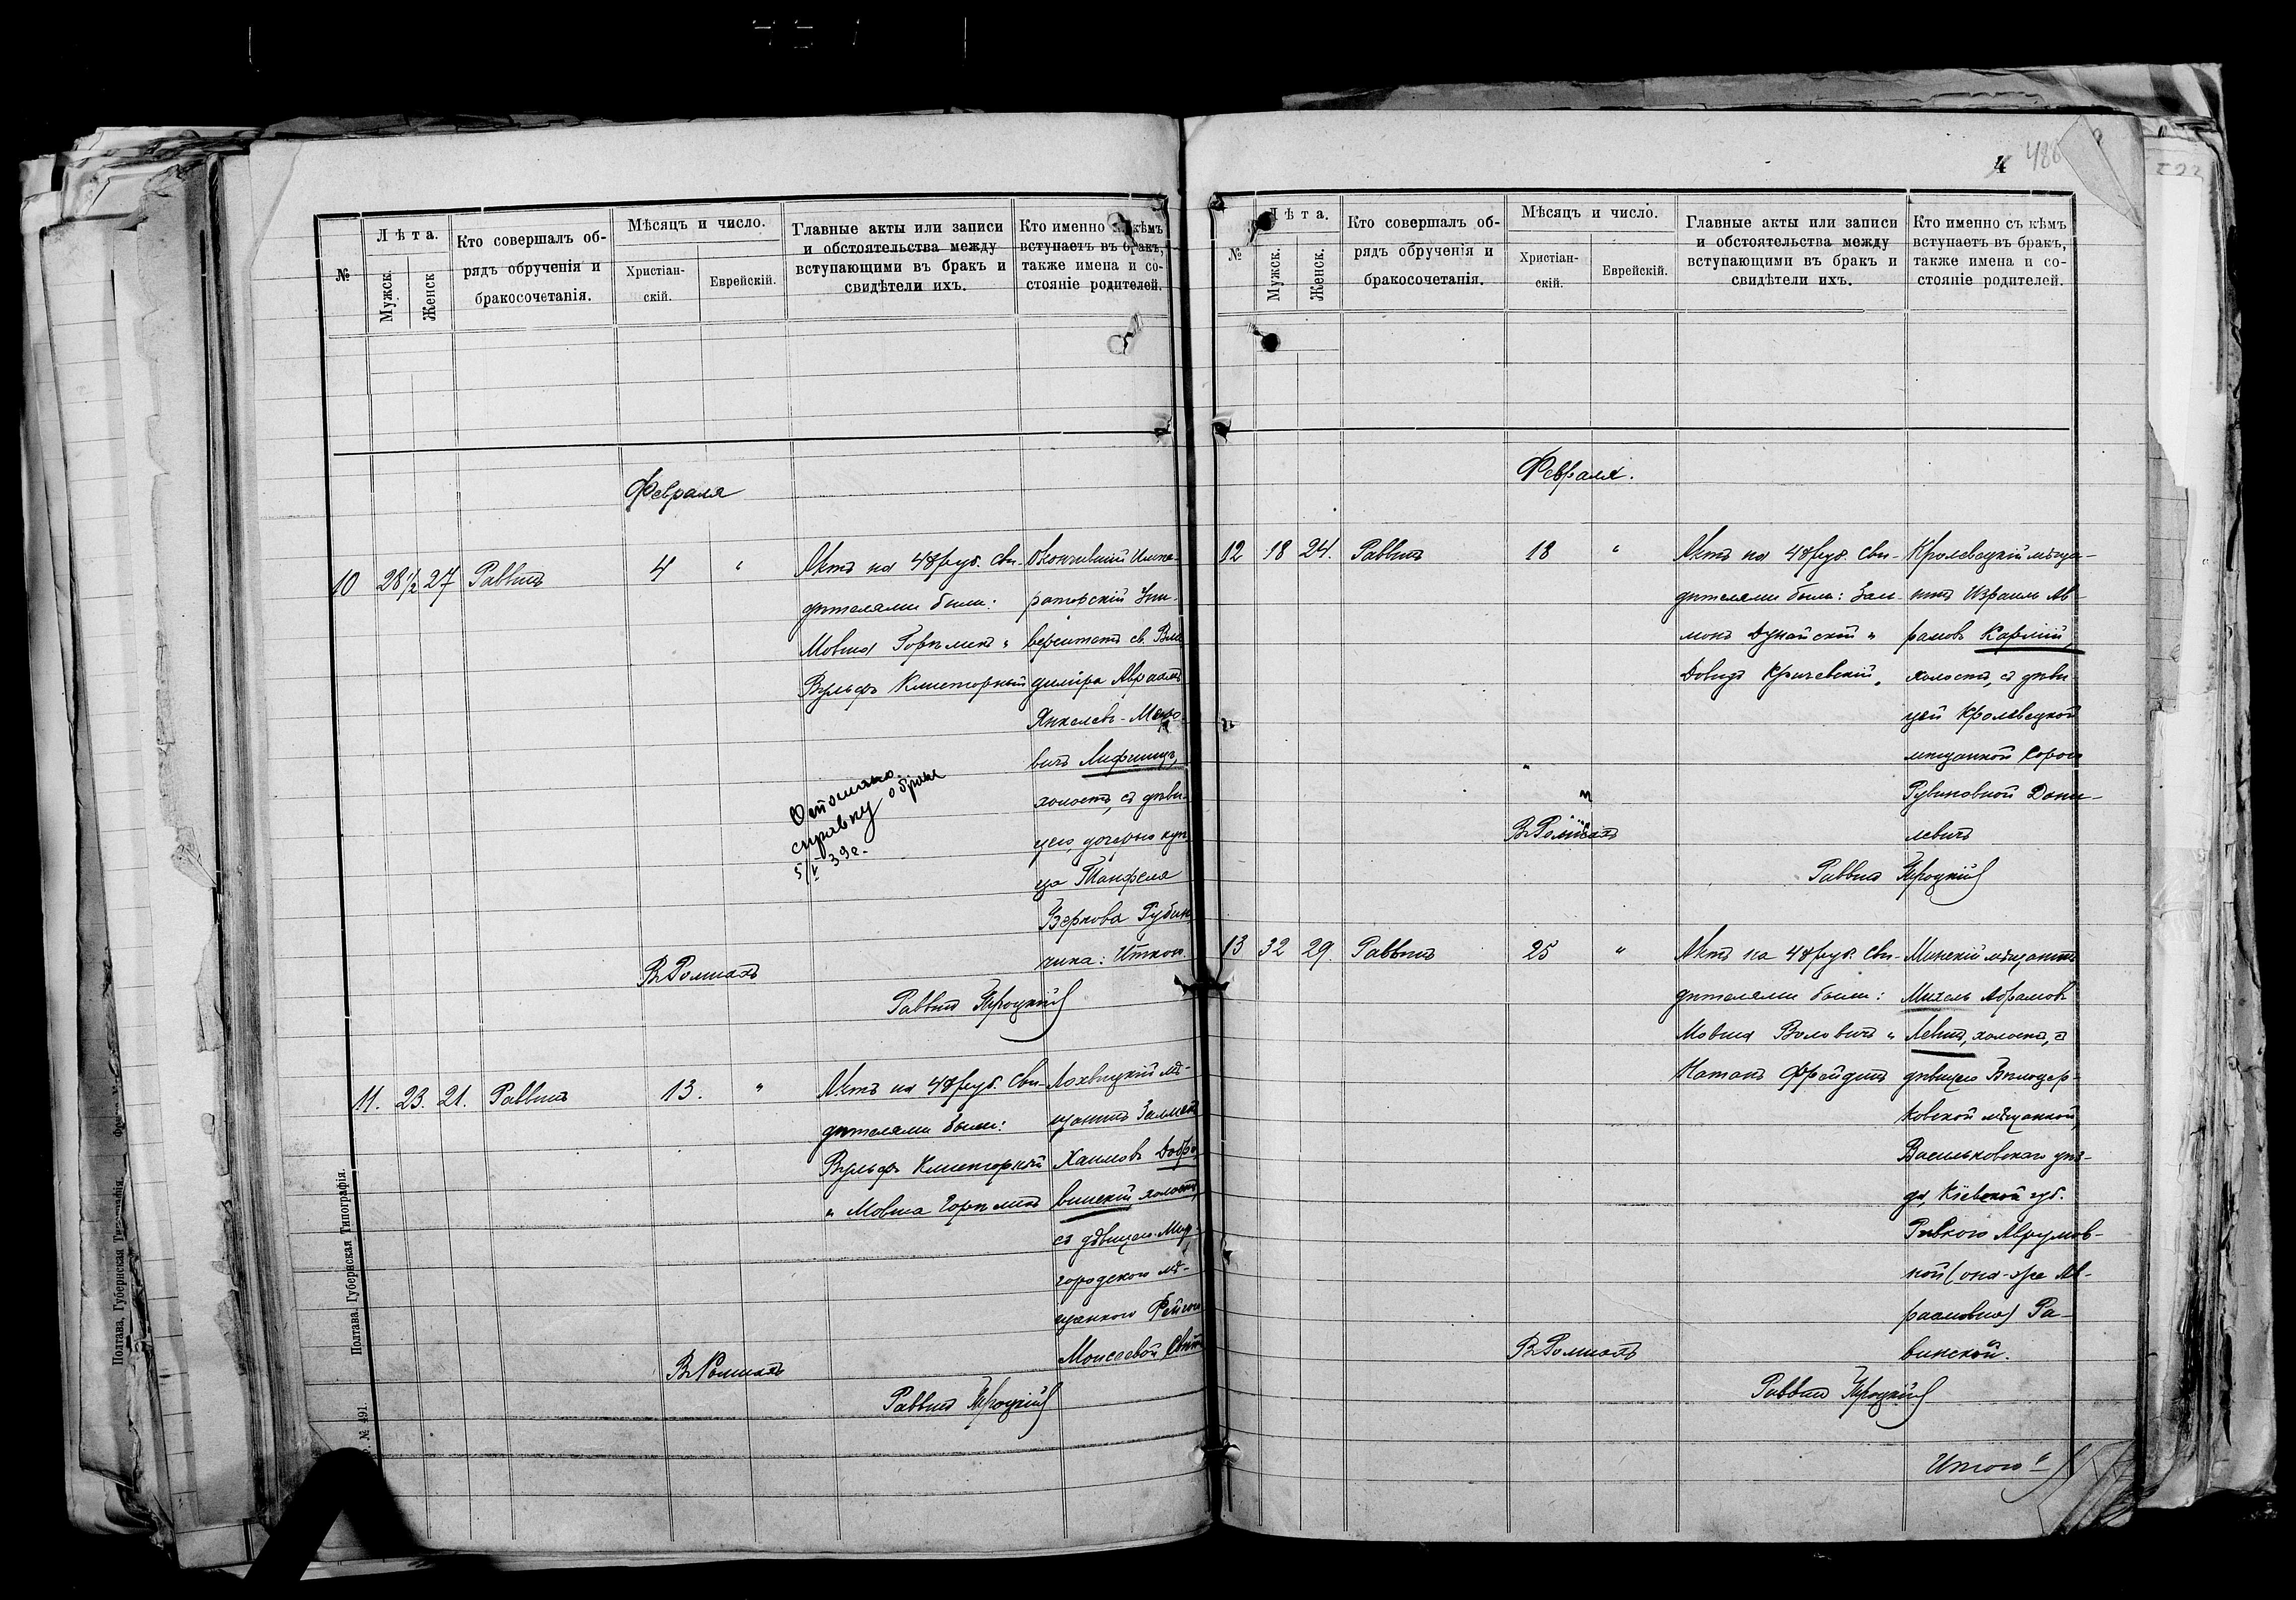 №
Лѣта.
Мужск.
Женск
Кто совершалъ об-
рядъ обрученія и
бракосочетанія.
Мѣсяцъ и число.
Христіан-
скій.
Еврейскій.
Главные акты или записи
и обстоятельства между
вступающими въ бракъ и
свидѣтели ихъ.
Кто именно съ кѣмъ
вступаетъ въ бракъ,
также имена и со-
стояніе родителей.
Февраля
10 28½ 27 Раввинъ 4 "
Актъ на 48 руб. Сви-
дѣтелями были:
Мовша Горѣликъ и
Вульфъ Клигорный
Окончившій Импе-
раторскій Уни-
верситетъ св. Вла
диміра Авраамъ
Янкелевъ-Меѣро
вичъ Лифшицъ,
холостъ, съ дѣви-
цею, дочерью куп
ца Танфеля
Беркова Рубин
чика: Иткою
справку о браке
5/V 39г.
Въ Ромнахъ
Раввинъ Троцкій
11. 23. 21. Раввинъ 13. "
Актъ на 48 руб. Сви-
дѣтелями были:
Вульфъ Клигорный
и Мовша Горѣликъ
Лохвицкій мѣ-
щанинъ Залманъ
Хаимовъ Добро
винскій холостъ,
съ дѣвицею Мир-
городскою мѣ-
щанкою Фейгою
Моисеевой
Въ Ромнахъ
Раввинъ Троцкій
Полтава. Губернская Типографія.
№ 491.
Полтава. Губернская Типографія.
4
№
Лѣта.
Мужск.
Женск.
Кто совершалъ об-
рядъ обрученія и
бракосочетанія.
Мѣсяцъ и число.
Христіан-
скій.
Еврейскій.
Главные акты или записи
и обстоятельства между
вступающими въ бракъ и
свидѣтели ихъ.
Кто именно съ кѣмъ
вступаетъ въ бракъ,
также имена и со-
стояніе родителей.
Февраля.
12 18 24. Раввинъ 18 "
Актъ на 48 руб. Сви-
дѣтелями были: Зал-
монъ Дунайскій и
Довидъ Кричевскій.
Кролевецкій мѣща-
нинъ Израиль Ав-
рамовъ Карлій,
холостъ, съ дѣви-
цей Кролевецкой
мѣщанкой Сорою
Рувиновной Дани-
левичъ
Въ Ромнахъ
Раввинъ Троцкій
13 32 29. Раввинъ 25 "
Актъ на 48 руб. Сви-
дѣтелями были:
Мовша Воловичъ и
Натанъ Фрейдинъ
Минскій мѣщанинъ
Михель Абрамовъ
Левинъ, холостъ, съ
дѣвицею Бѣлоцер-
ковской мѣщанкой,
Васильковскаго уѣз-
да, Кіевской губ.
Ривкою Аврумов-
ной (она-же Ав-
раамовна) Ра-
винской.
Въ Ромнахъ
Раввинъ Троцкій
Итого